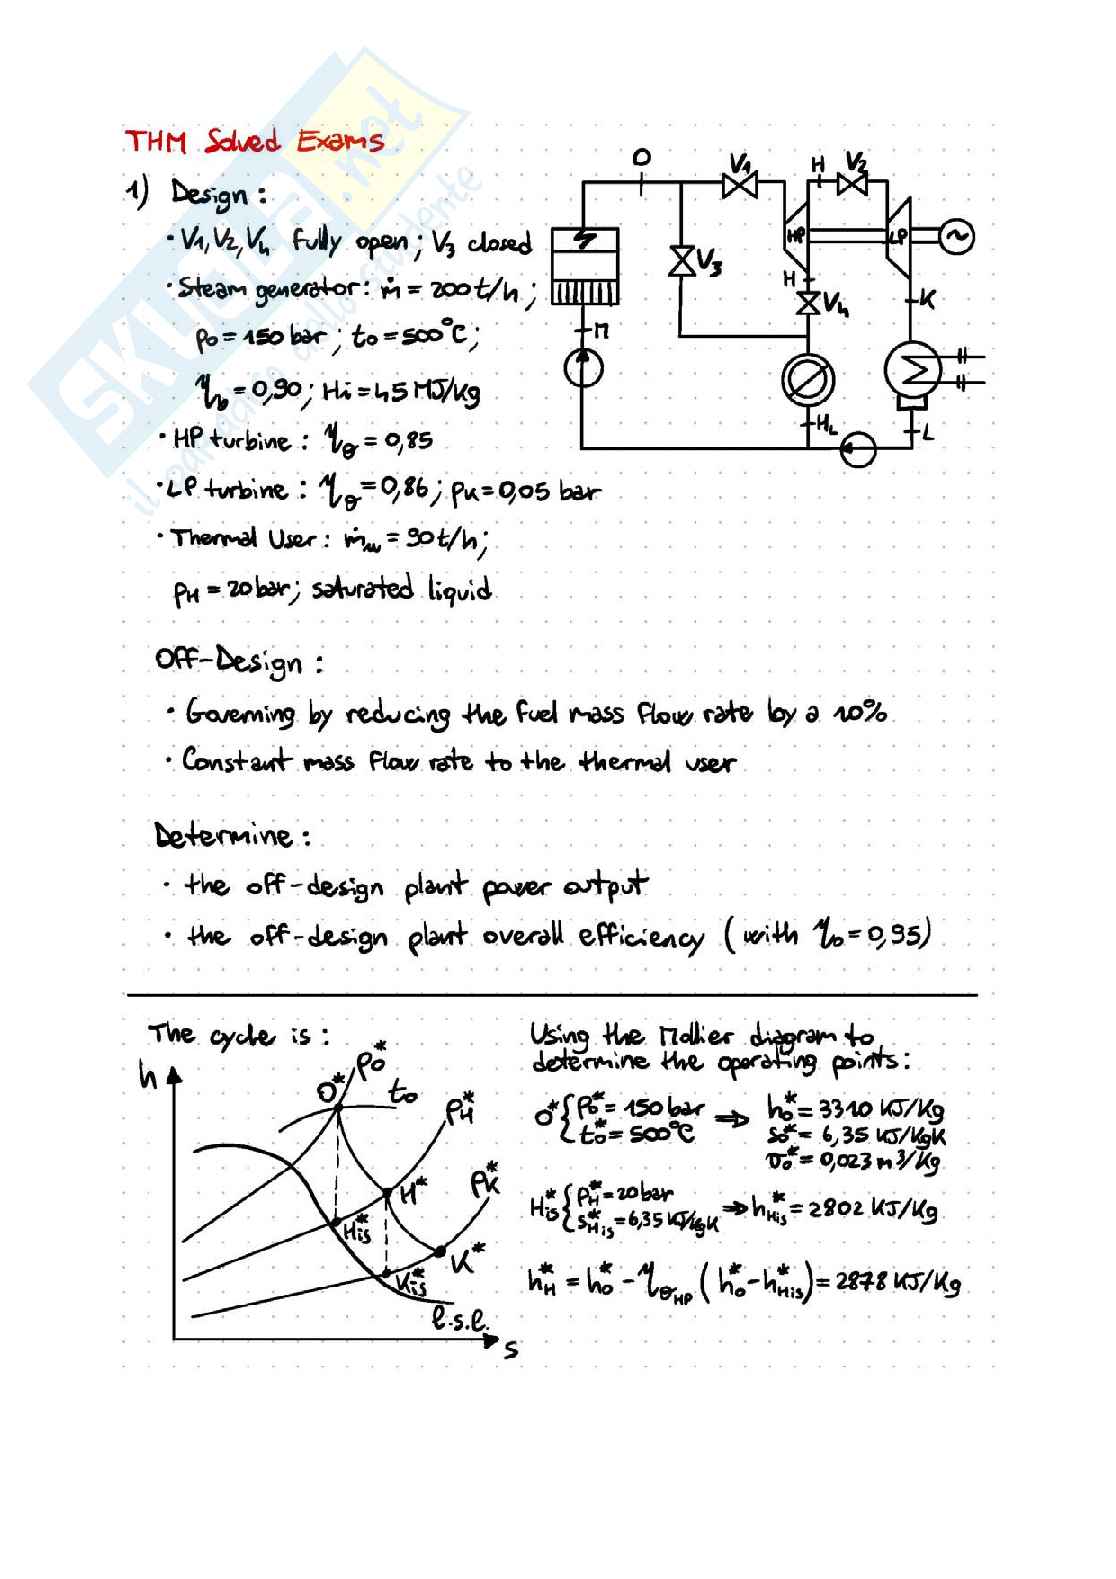 THM Solved Exams
1) Design:
• V1, V2, V4 fully open; V3 closed
• Steam generator: ṁ = 200 t/h;
p0 = 150 bar; t0 = 500°C;
ηb = 0,90; Hi = 45 MJ/kg
• HP turbine: ηθ = 0,85
• LP turbine: ηθ = 0,86; pK = 0,05 bar
• Thermal User: ṁu = 90 t/h;
pH = 20 bar; saturated liquid
O
V1
H
V2
HP
LP
~
V3
H
V4
K
M
HL
L
Off-Design:
• Governing by reducing the fuel mass flow rate by a 10%
• Constant mass flow rate to the thermal user
Determine:
• the off-design plant power output
• the off-design plant overall efficiency (with ηo = 0,95)
The cycle is:
h
O*
p0*
t0
pH*
H*
pK*
His*
K*
Kis*
l.s.l.
s
Using the Mollier diagram to
determine the operating points:
O* { p0* = 150 bar ⇒ h0* = 3310 KJ/Kg
t0* = 500°C s0* = 6,35 KJ/KgK
v0* = 0,023 m³/Kg
His* { pH* = 20 bar ⇒ hHis* = 2802 KJ/Kg
sHis* = 6,35 KJ/KgK
hH* = h0* - ηθHP (h0* - hHis*) = 2878 KJ/Kg
SKUOLA.net